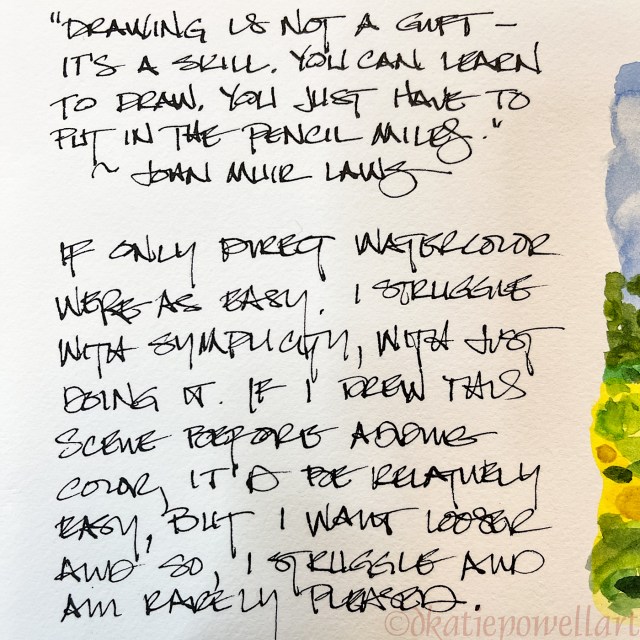 "DRAWING IS NOT A GIFT –
IT'S A SKILL. YOU CAN LEARN
TO DRAW. YOU JUST HAVE TO
PUT IN THE PENCIL MILES."
~ JOHN MUIR LAWS
IF ONLY DIRECT WATERCOLOR
WERE AS EASY. I STRUGGLE
WITH SYMPLICITY, WITH JUST
DOING IT. IF I DREW THIS
SCENE BEFORE ADDING
COLOR, IT'D BE RELATIVELY
EASY, BUT I WANT LOOSER
AND SO, I STRUGGLE AND
AM RARELY PLEASED.
©dkatiepowellart